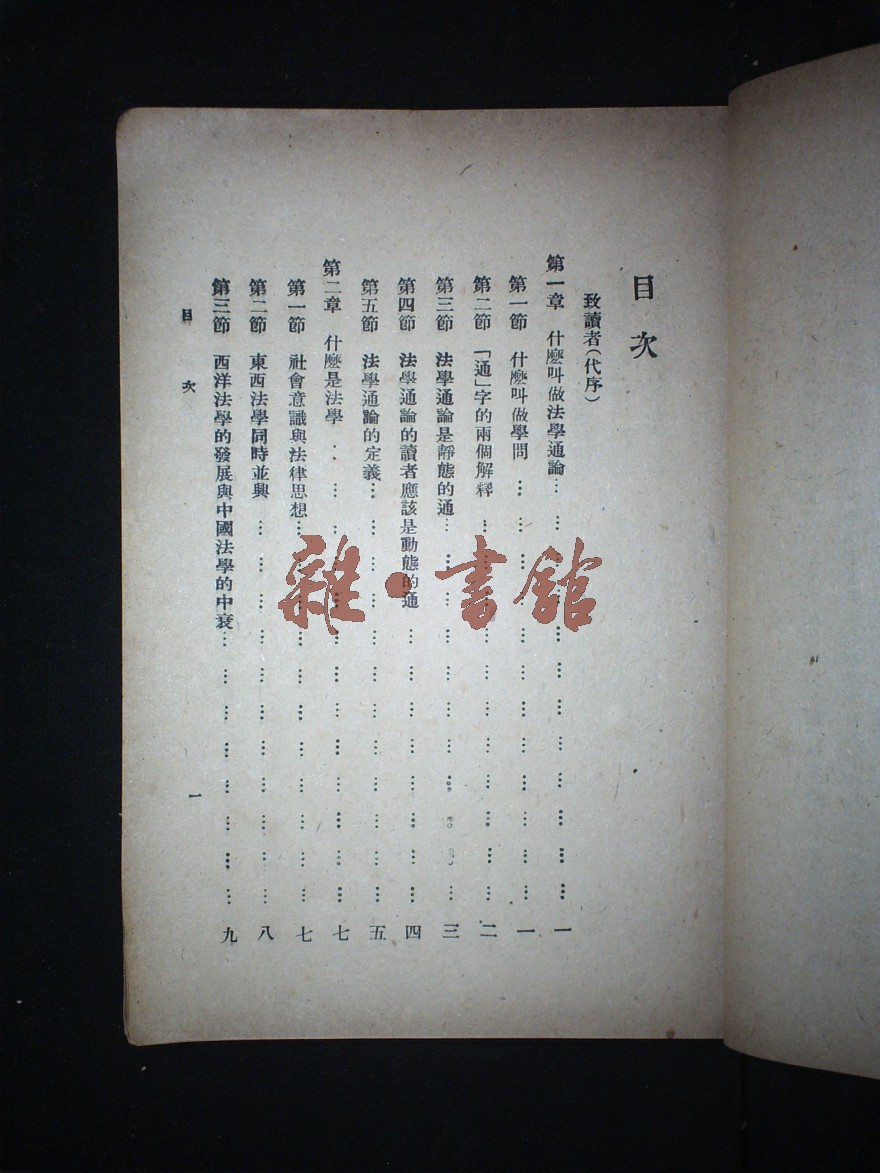 目次
致讀者(代序)
第一章 什麼叫做法學通論…………………………一
第一節 什麼叫做學問…………………………一
第二節 「通」字的兩個解釋…………………………二
第三節 法學通論是靜態的通…………………………三
第四節 法學通論的讀者應該是動態的通…………………………四
第五節 法學通論的定義…………………………五
第二章 什麼是法學…………………………七
第一節 社會意識與法律思想…………………………七
第二節 東西法學同時並興…………………………八
第三節 西洋法學的發展與中國法學的中衰…………………………九
目次 一
雜·書館